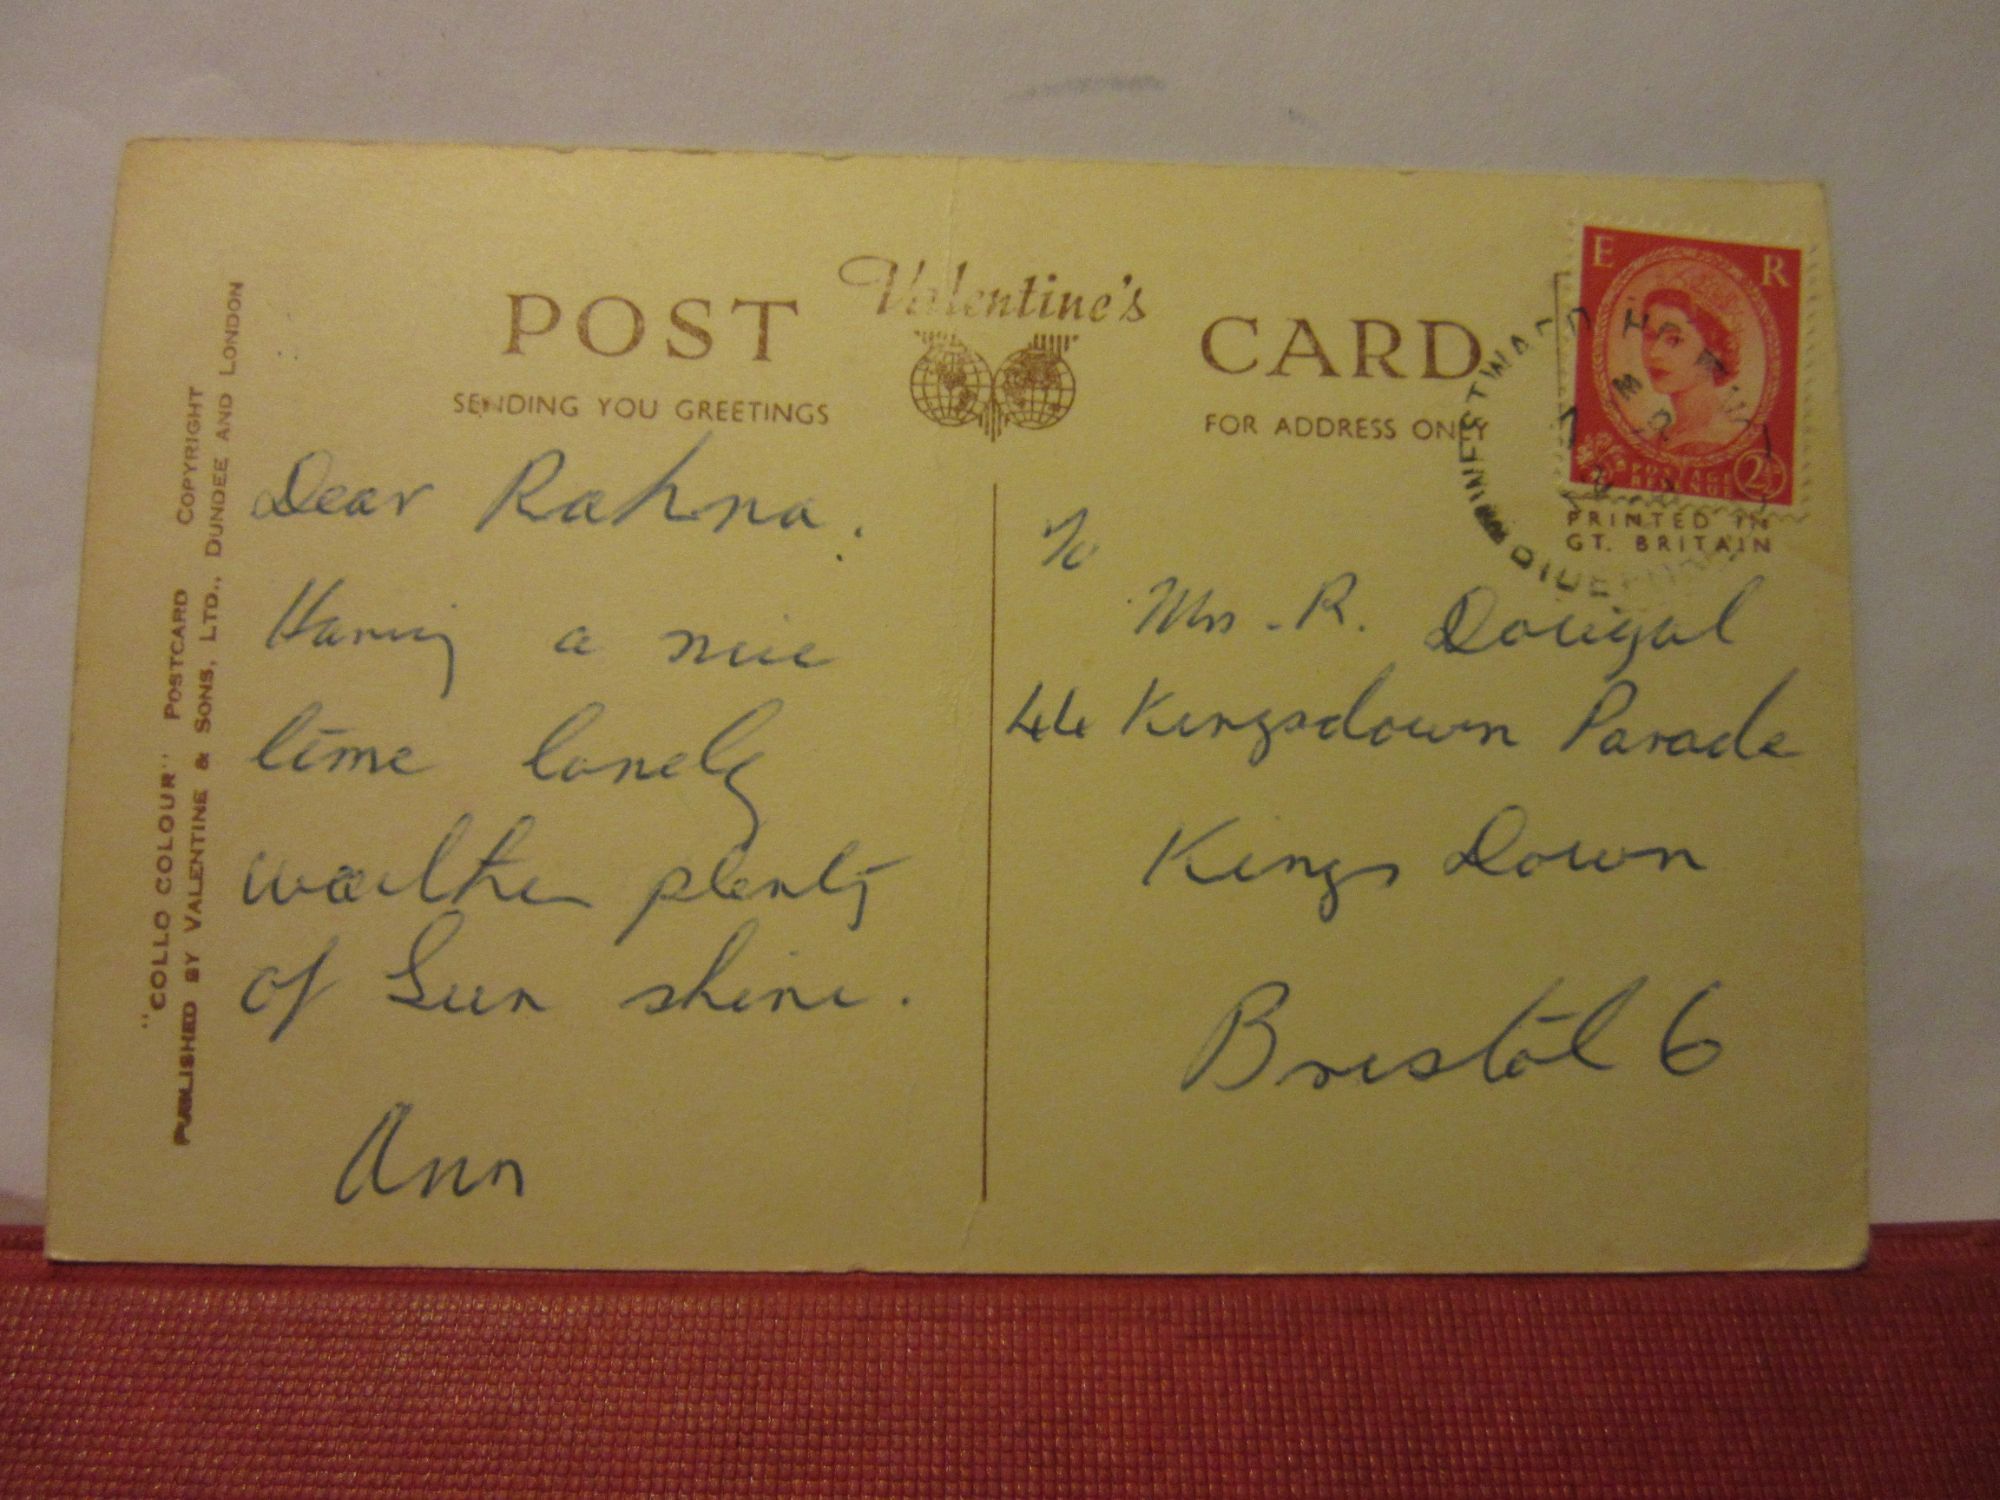 POST Valentine's CARD
SENDING YOU GREETINGS
FOR ADDRESS ONLY
"COLLO COLOUR" POSTCARD COPYRIGHT
PUBLISHED BY VALENTINE & SONS, LTD., DUNDEE AND LONDON
E R
POSTAGE
REVENUE
PRINTED IN
GT. BRITAIN
WESTWARD
BIDEFORD
Dear Rahna.
Having a nice
time lovely
weather plenty
of Sun shine.
Ann
To
Mrs. R. Dougal
44 Kingsdown Parade
Kings Down
Bristol 6